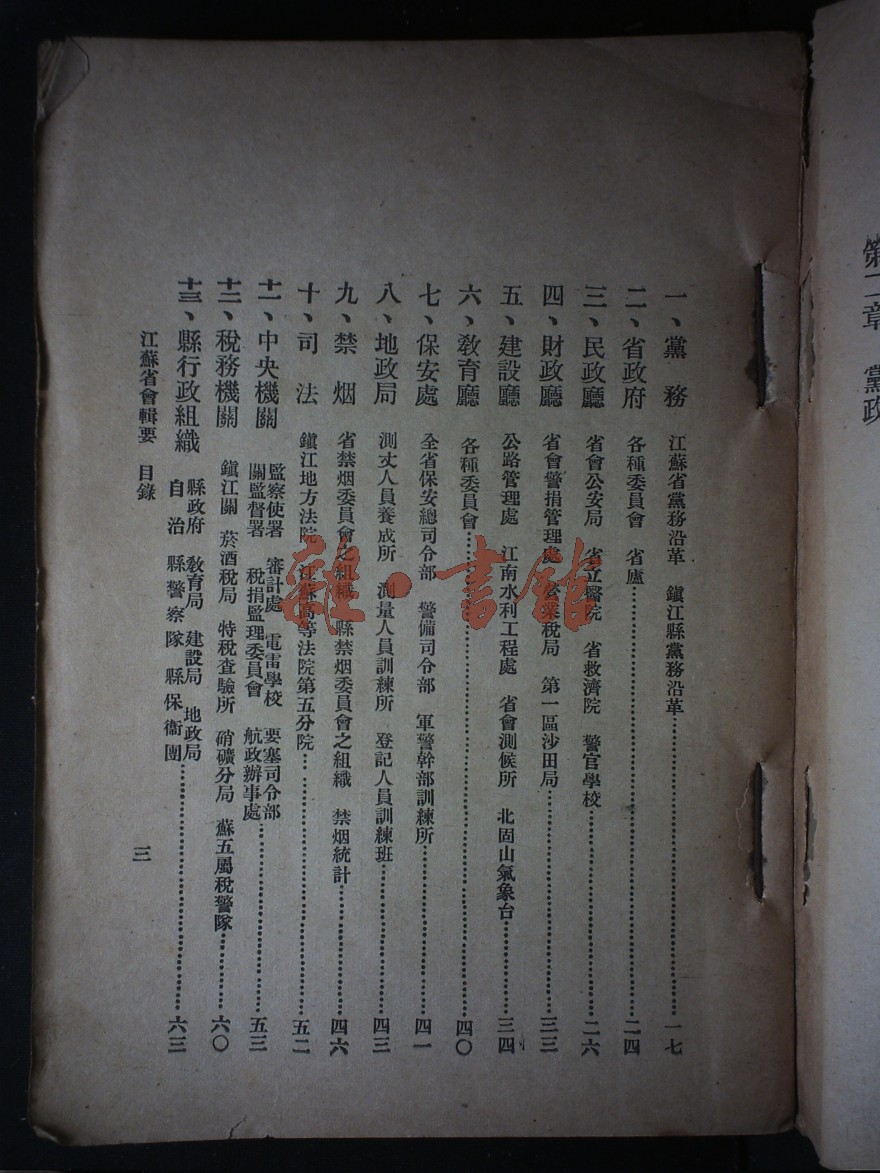 第二章　黨政
一、黨　務　江蘇省黨務沿革　鎮江縣黨務沿革…………一七
二、省政府　各種委員會　省廬…………二四
三、民政廳　省會公安局　省立醫院　省救濟院　警官學校…………二六
四、財政廳　省會警捐管理處　營業稅局　第一區沙田局…………三三
五、建設廳　公路管理處　江南水利工程處　省會測候所　北固山氣象台…………三四
六、敎育廳　各種委員會…………四〇
七、保安處　全省保安總司令部　警備司令部　軍警幹部訓練所…………四一
八、地政局　測丈人員養成所　測量人員訓練所　登記人員訓練班…………四三
九、禁　烟　省禁烟委員會之組織　縣禁烟委員會之組織　禁烟統計…………四六
十、司　法　鎮江地方法院　江蘇高等法院第五分院…………五二
十一、中央機關　監察使署　審計處　電雷學校　要塞司令部
關監督署　稅捐監理委員會　航政辦事處…………五三
十二、稅務機關　鎮江關　菸酒稅局　特稅查驗所　硝礦分局　蘇五屬稅警隊…………六〇
十三、縣行政組織　縣政府　敎育局　建設局　地政局
自治　縣警察隊　縣保衞團…………六三
江蘇省會輯要　目錄　三
雜·書館